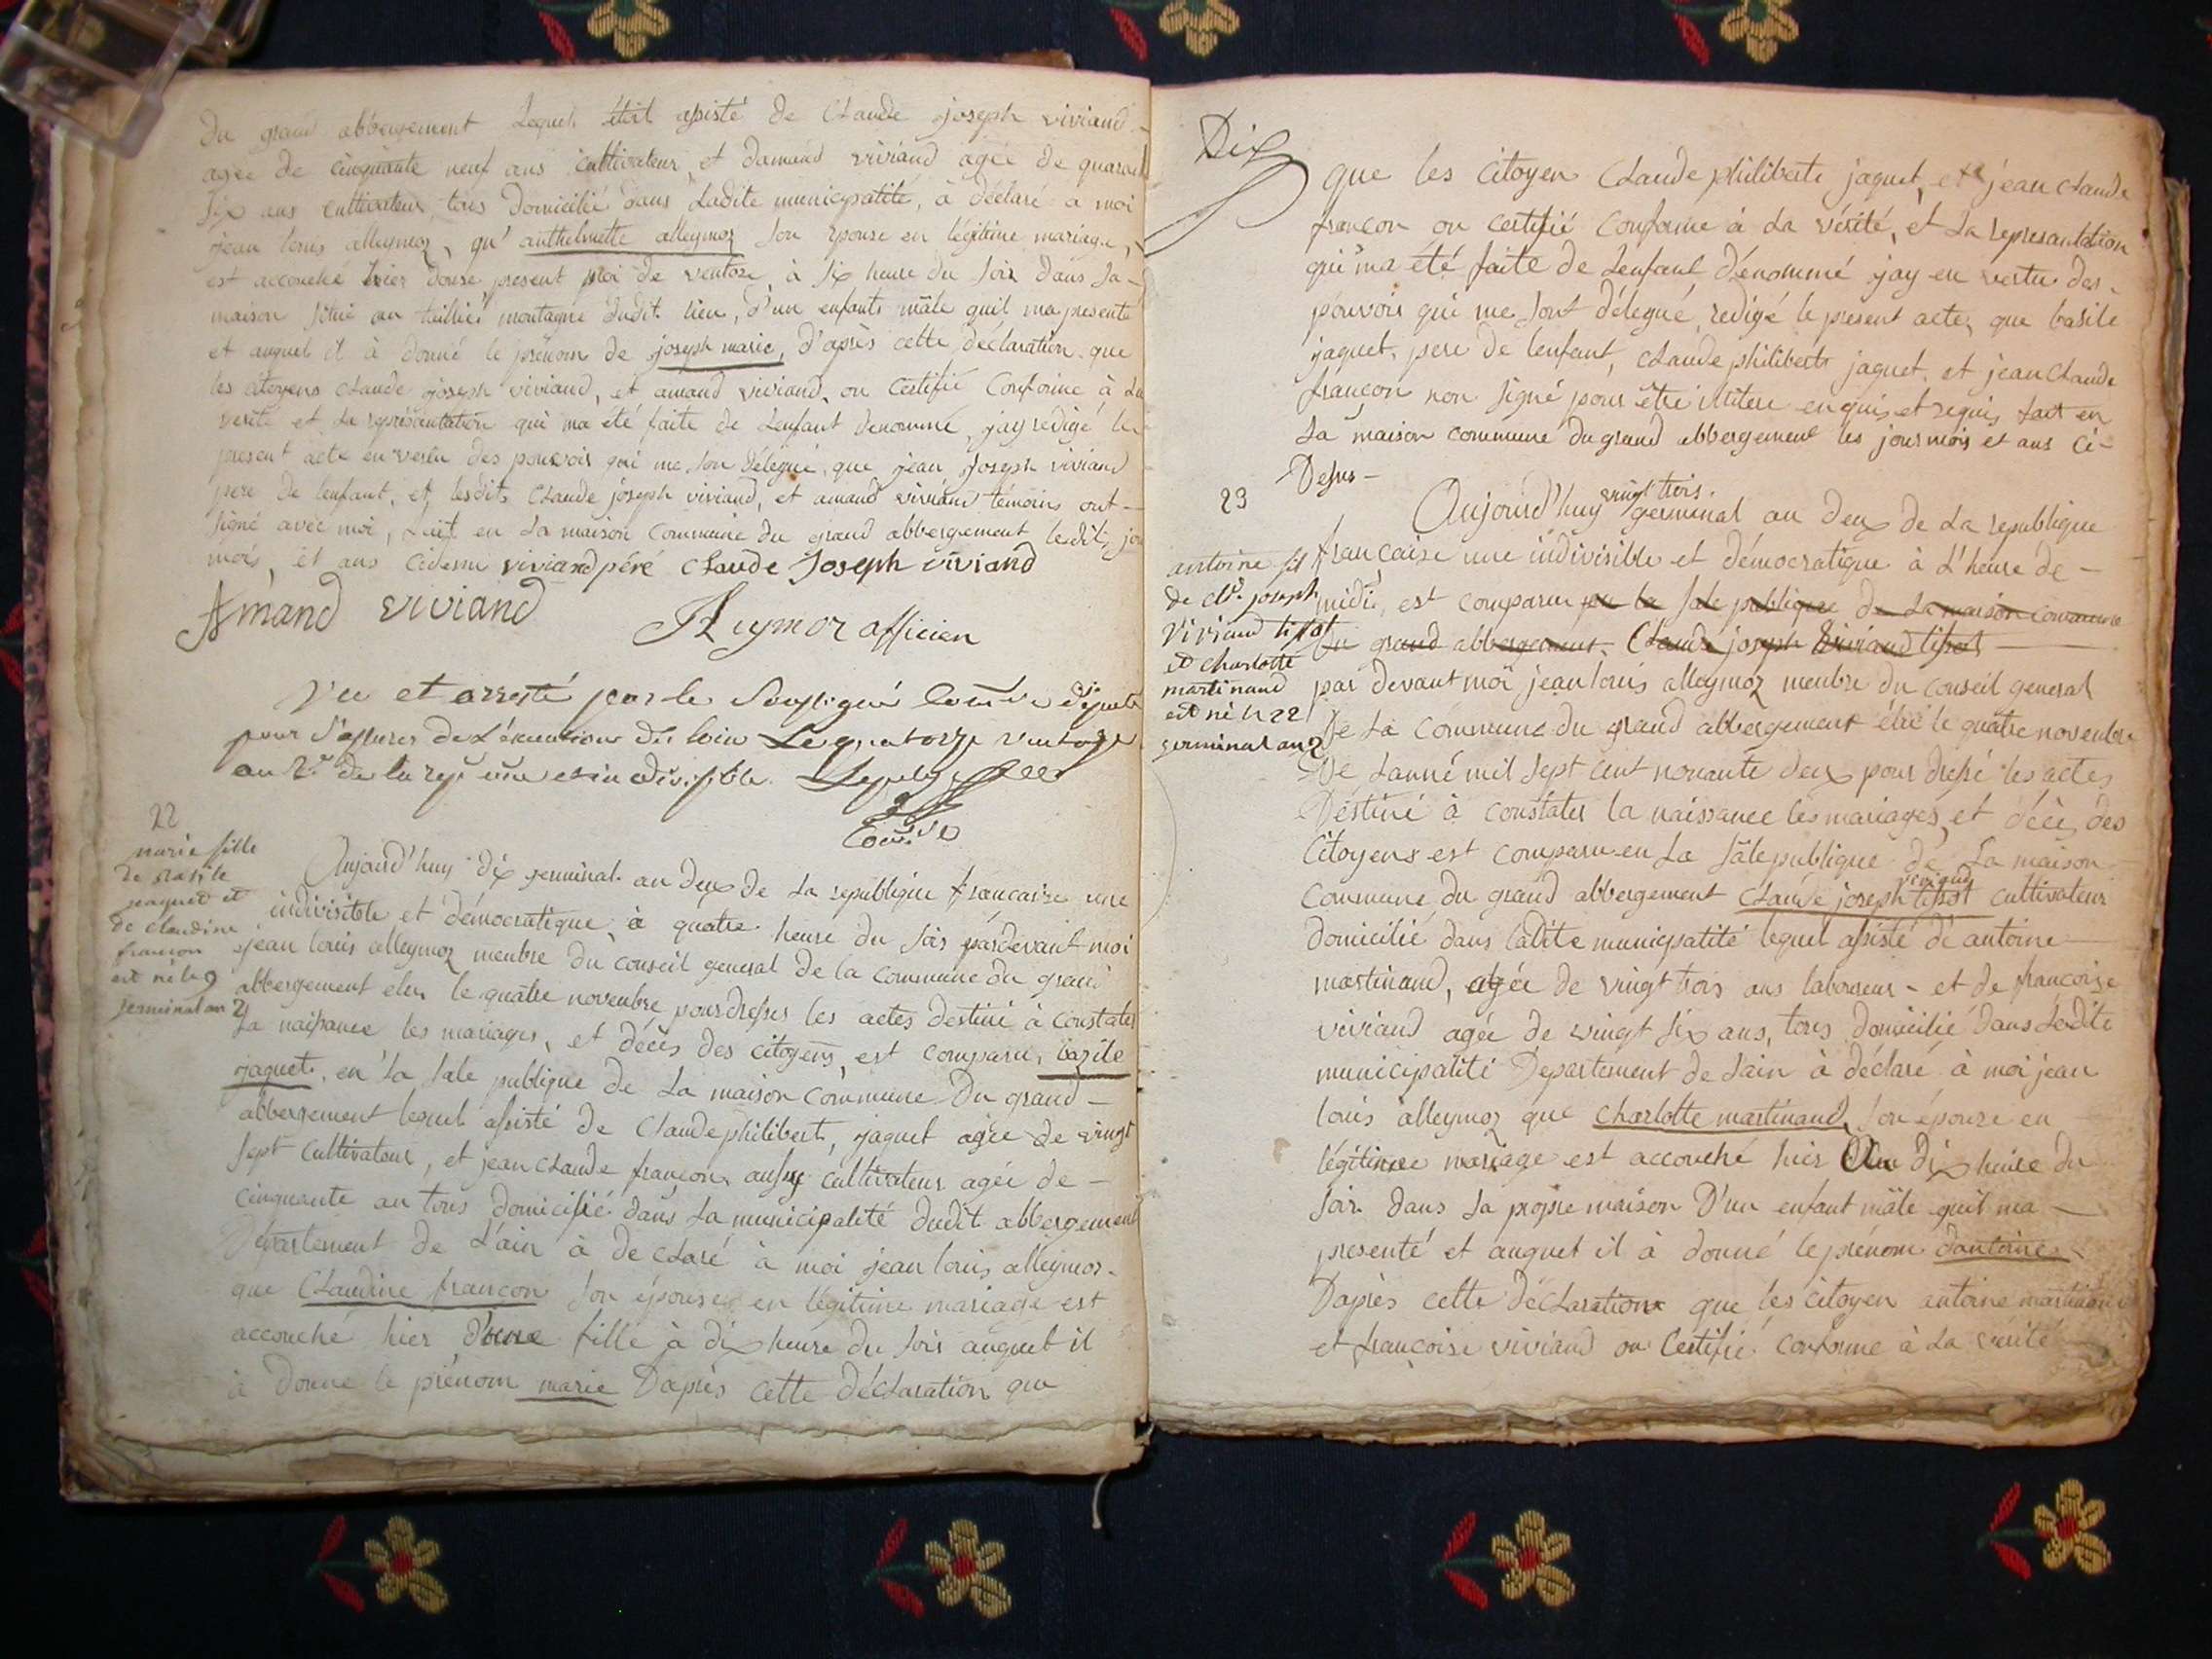 du grand abbergement Lequel était assisté de Claude joseph viviand
agée de cinquante neuf ans cultivateur, et damand viviand agée de quarante
six ans cultivateur, tous domicilié dans Ladite municipalité, à déclaré à moi
jean louis alleymoz, qu'anthelmette alleymoz son épouse en légitime mariage,
est accouché hier douse present moi de ventose, à six heure du soir dans sa
maison situé au montagne dudit lieu, d'un enfants mâle quil ma presenté
et auquel il à donné le prénom de joseph marie, d'après cette déclaration que
les citoyens Claude joseph viviand, et amand viviand, on certifié Conforme à La
verité et La representation qui ma été faite de Lenfant denommé, jay redigé le
present acte en vertu des pouvoir qui me son délégué, que jean joseph viviand
pere de lenfant, et lesdits Claude joseph viviand, et amand viviand témoins ont
signé avec moi, fait en La maison Commune du grand abbergement ledits jour
mois, et ans cidessu viviand péré Claude Joseph viviand
Amand viviand
officien
Vu et arresté par le Soussigné
pour s'assurer de L'éxecution des loix Le quatorze ventose
an 2e de la rep une et indivisible.
22
marie fille
de basile
jaquet et
de claudine
francon
est né le 9
germinal an 2
Aujourd'huy dix germinal an deux de La republique francaise une
indivisible et démocratique, à quatre heure du soir pardevant moi
jean louis alleymoz membre du conseil general de la commune du grand
abbergement elu le quatre novembre pour dresser les actes destiné à constater
La naissance les mariages, et décès des citoyens, est comparu, bazile
jaquet, en La sale publique de La maison Commune Du grand
abbergement lequel assisté de Claude philibert, jaquet agée de vingt
sept cultivateur, et jean Claude francon aussy cultivateur agée de
cinquante an tous domicilié dans La municipalité dudit abbergement
Département de L'ain à declaré à moi jean louis alleymoz
que Claudine francon son épouse en légitime mariage est
accouché hier d'une fille à dix heure du soir auquel il
à donné le prénom marie Dapres cette déclaration que
Dix
que les Citoyen Claude philiberte jaquet, et jéan Claude
francon on certifié conforme à La vérité, et La representation
qui ma été faite de Lenfant dénommé jay en vertu des
pouvoir qui me sont délegué, redigé le present acte, que basile
jaquet, pere de lenfant, Claude philiberte jaquet, et jean Claude
francon non signé pour être ilitere enquis et requis, fait en
La maison commune du grand abbergement les jour mois et ans ci-
Dessus
23
antoine fil
de Cde joseph
viviand tissot
et charlotte
martinand
est né le 22
germinal an 2
vingt trois
Aujourd'huy germinal an deux de La republique
francaise une indivisible et démocratique à L'heure de
midi, est comparu en la sale publique de La maison commune
Du grand abbergement, Claude joseph viviand tissot
par devant moi jean louis alleymoz membre du conseil general
De La Commune du grand abbergement élu le quatre novembre
De Lanné mil sept cent nonante deux pour dressé les actes
Déstiné à constater la naissance les mariages, et décès des
Citoyens est comparu en La sâle publique de La maison
viviand
Commune du grand abbergement Claude joseph tissot cultivateur
domicilié dans ladite municipalité lequel assisté de antoine
martinand, agée de vingt trois ans laboureur et de francoise
viviand agée de vingt six ans, tous domicilié dans Ledite
municipalité Département de Lain à déclaré à moi jean
louis alleymoz que charlotte martinand son épouse en
légitime mariage est accouché hier dix heure du
soir dans sa propre maison D'un enfant mâle quil ma
presenté et auquel il à donné le prénom dantoine
Dapres cette déclaration que les citoyen antoine martinand
et francoise viviand on certifié conforme à La vérité